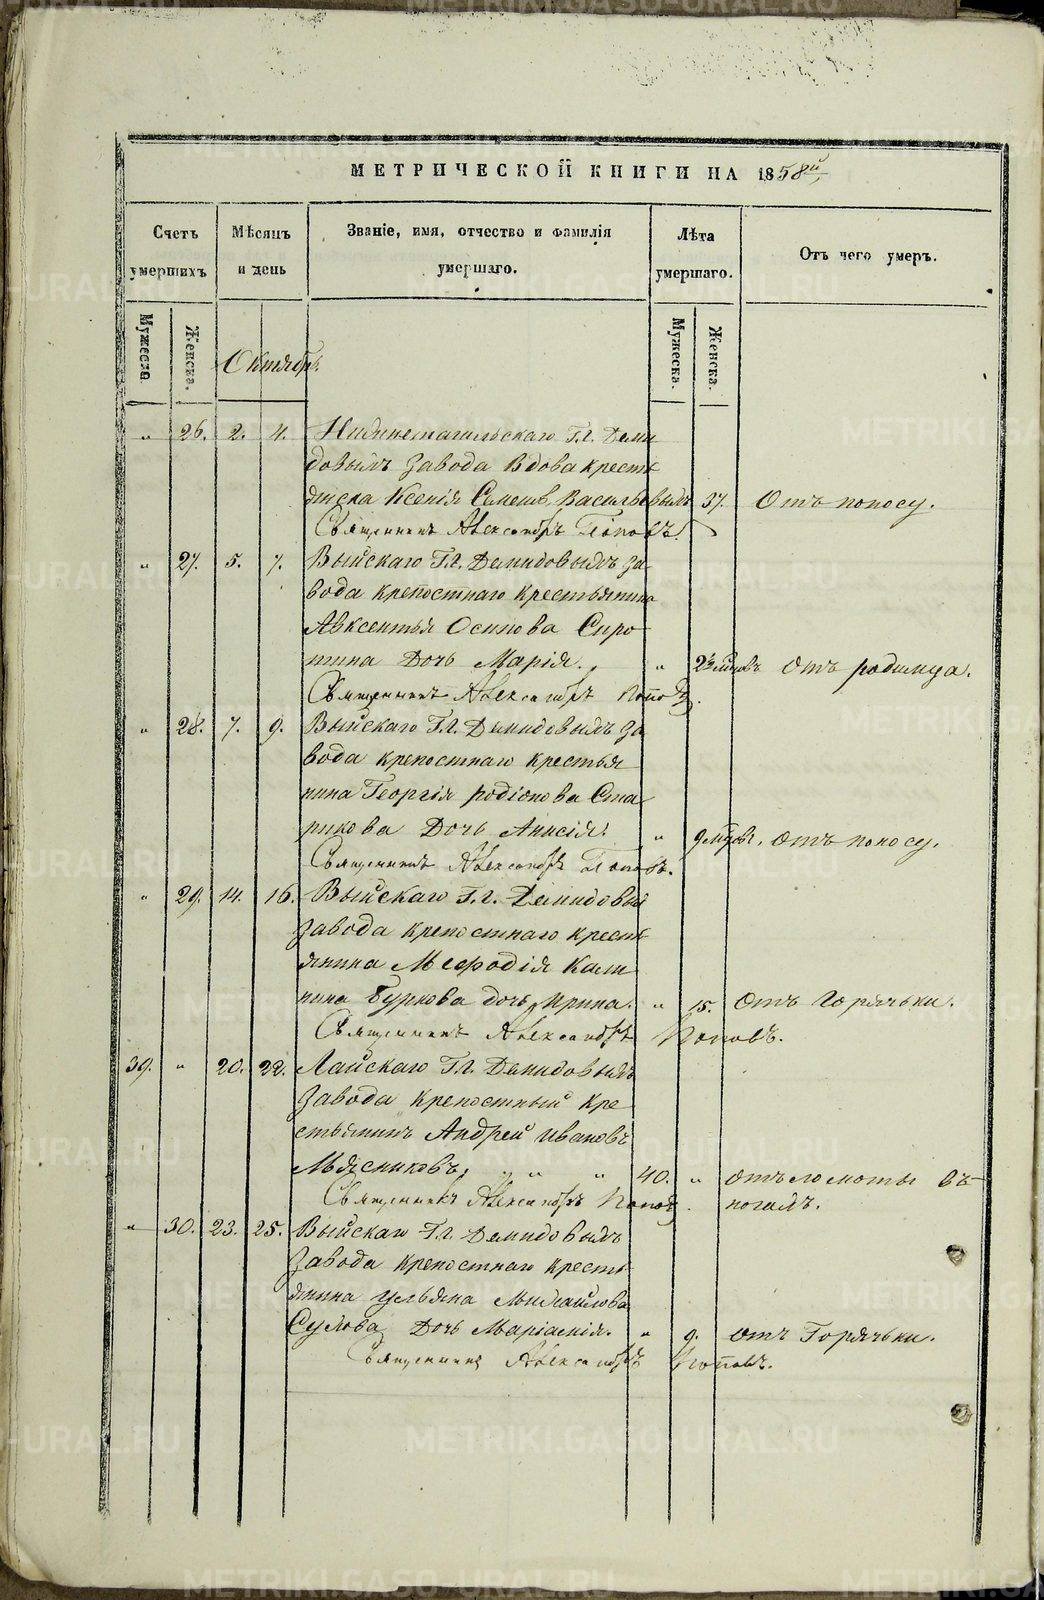 МЕТРИЧЕСКОЙ КНИГИ НА 1858й
Счетъ умершихъ
Мѣсяцъ и день
Званіе, имя, отчество и фамилія умершаго.
Лѣта умершаго.
Отъ чего умеръ.
Мужеска.
Женска.
Мужеска.
Женска.
Октябрь.
„ 26. 2. 4. Нижнетагильскаго Г.г. Деми
довыхъ завода Вдова кресть
янска Ксенія Васильевыхъ 37. Отъ поносу.
Священникъ Александръ Поповъ.
„ 27. 5. 7. Выйскаго Г.г. Демидовыхъ за
вода крепостнаго крестьянина
Авксентья Осипова Сиро
тина Дочь Марія. „ Отъ родимца.
Священникъ Александръ Поповъ.
„ 28. 7. 9. Выйскаго Г.г. Демидовыхъ за
вода крепостнаго крестья
нина Георгія родіонова Ста
рикова Дочь Анисія. „ 9 отъ поносу.
Священникъ Александръ Поповъ.
„ 29. 14. 16. Выйскаго Г.г. Демидовыхъ
завода крепостнаго кресть
янина Мефодія Кали
нина Буркова дочь Ирина. „ 15. Отъ Горячьки.
Священникъ Александръ Поповъ.
39. „ 20. 22. Лайскаго Г.г. Демидовыхъ
завода крепостный кре
стьянинъ Андрей Ивановъ
Мясниковъ, „ „ „ 40. „ отъ ломоты въ
Священникъ Александръ Поповъ. ногахъ.
„ 30. 23. 25. Выйскаго Г.г. Демидовыхъ
завода крепостнаго кресть
янина Ульяна Михайлова
Сулова Дочь „ 9. отъ Горячьки.
Священникъ Александръ Поповъ.
METRIKI.GASO-URAL.RU